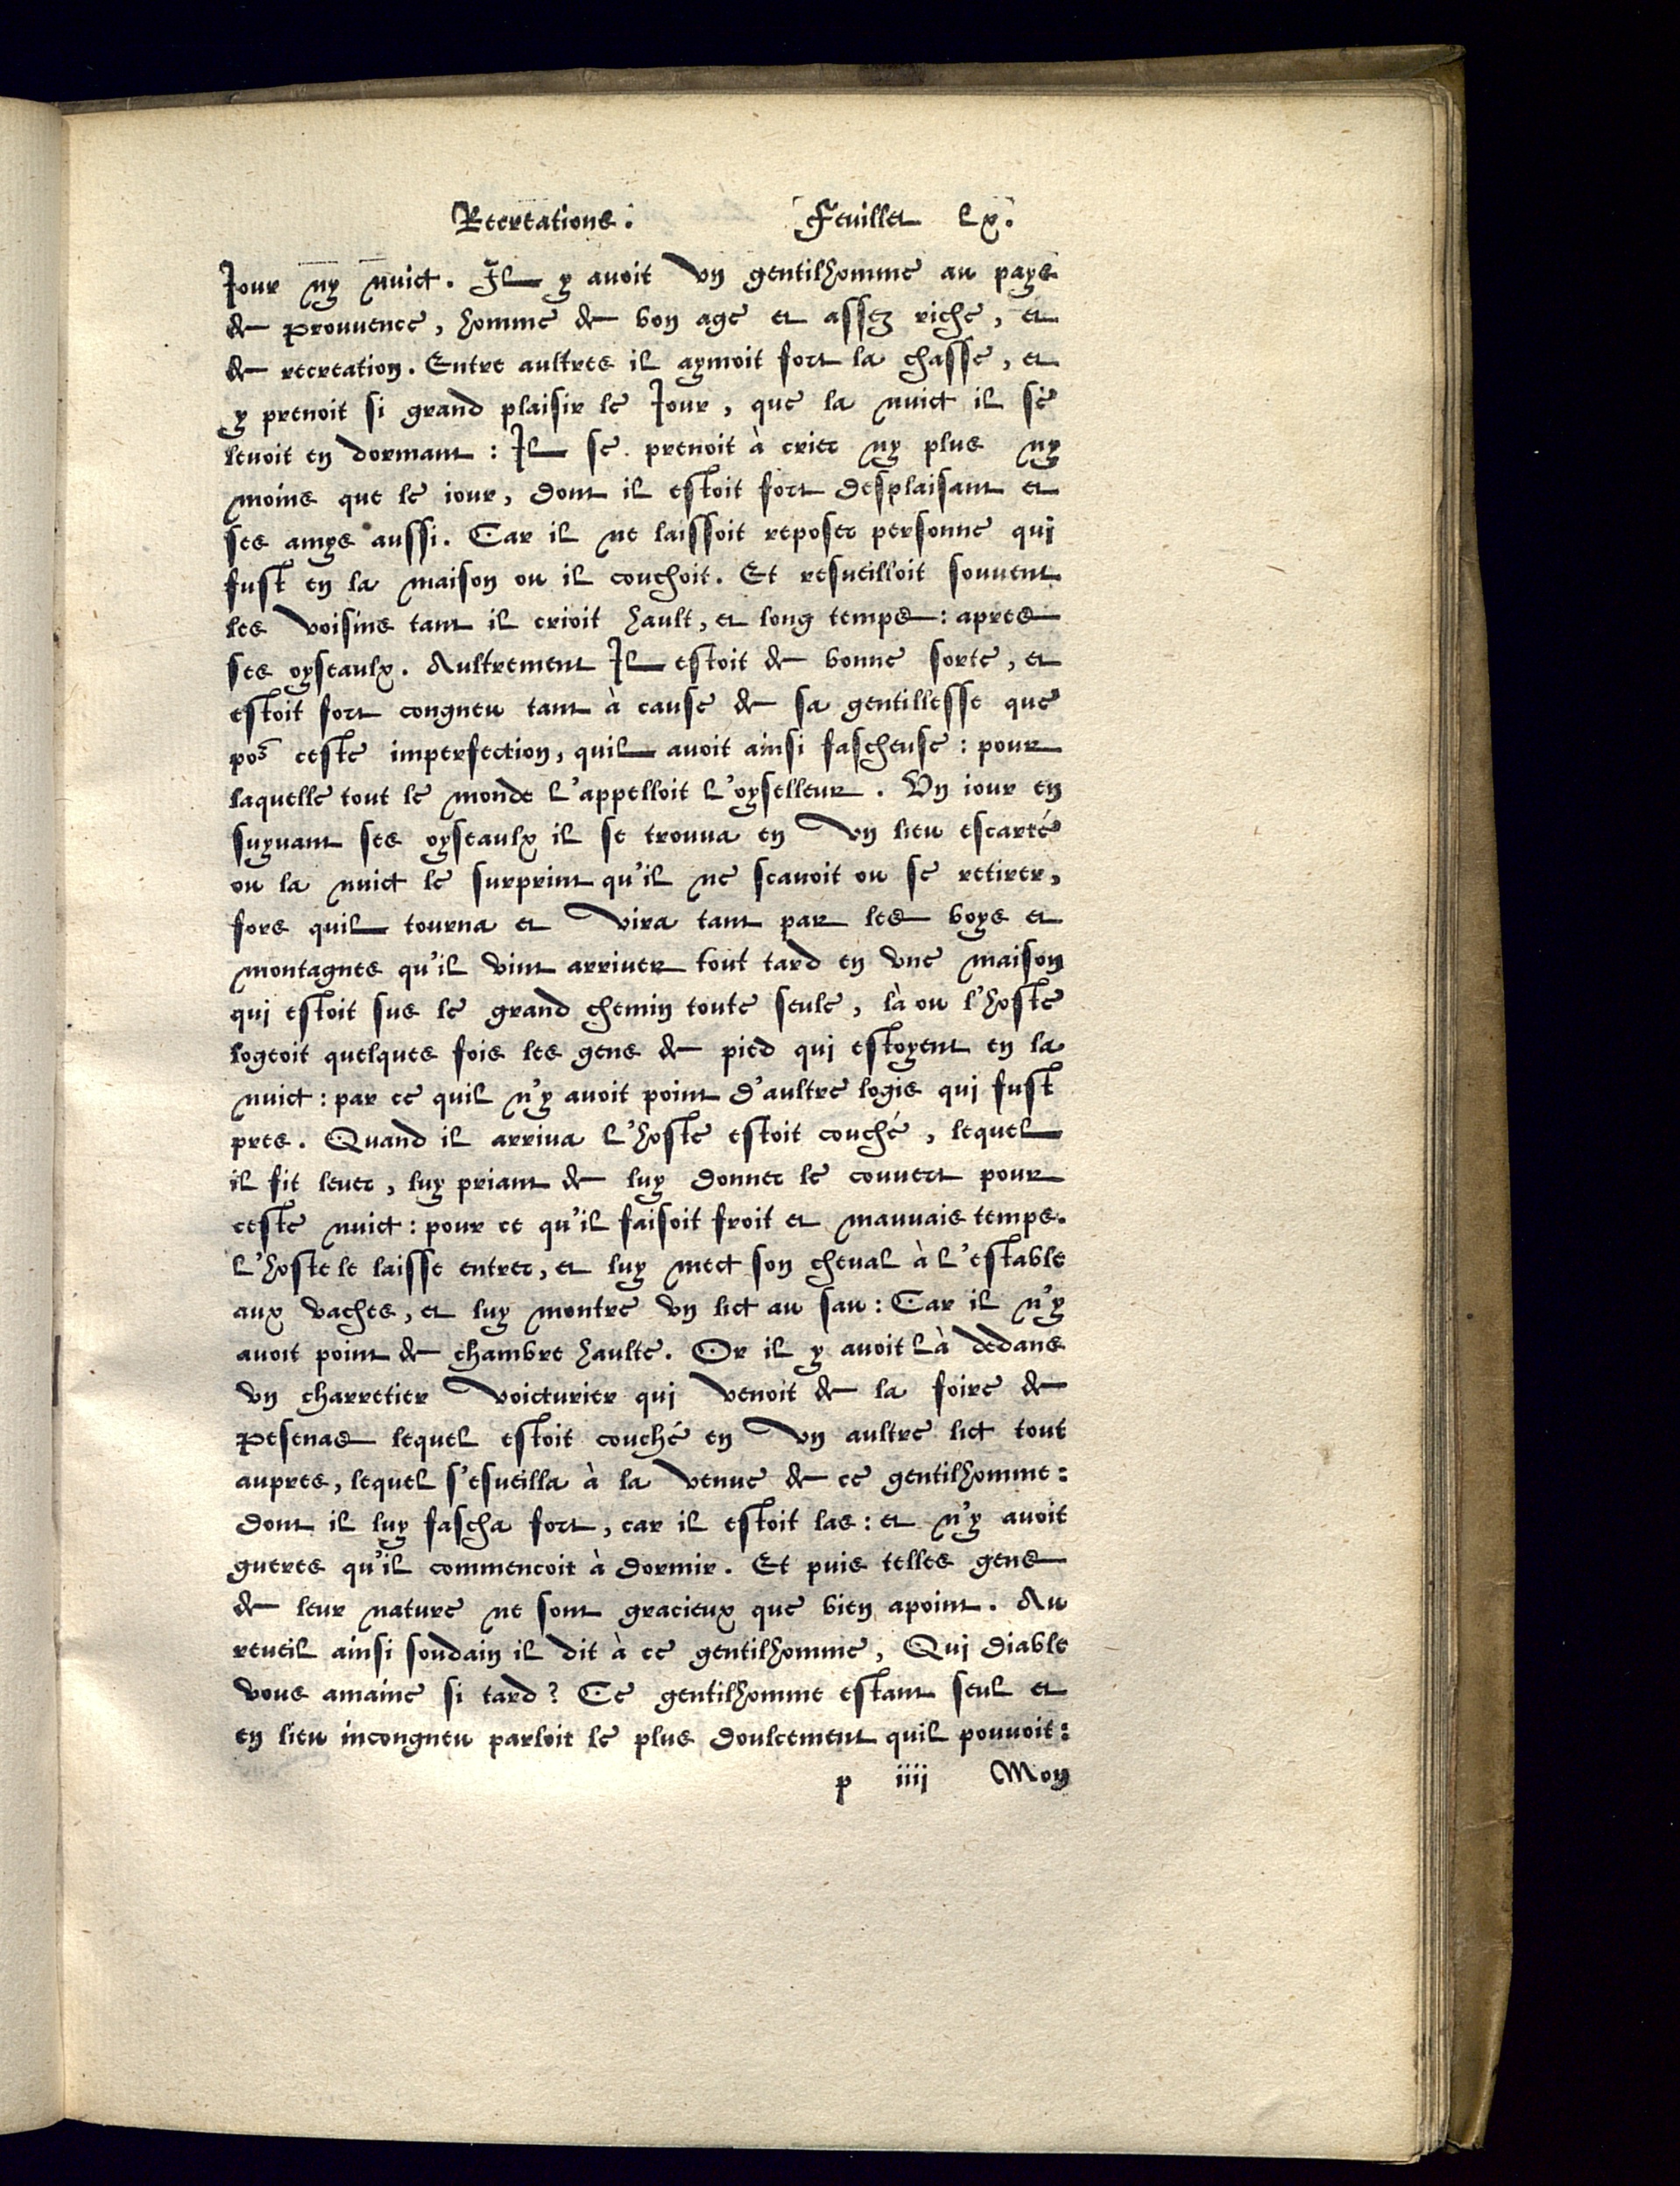 Recreations. Feuillet lx.
Jour ny nuict. Il y auoit vn gentilhomme au pays
de prouuence, homme de bon age et assez riche, et
de recreation. Entre aultres il aymoit fort la chasse, et
y prenoit si grand plaisir le Jour, que la nuict il se
leuoit en dormant : Il se prenoit à crier ny plus ny
moins que le iour, dont il estoit fort desplaisant et
ses amys aussi. Car il ne laissoit reposer personne qui
fust en la maison ou il couchoit. Et resueilloit souuent
les voisins tant il crioit hault, et long temps : apres
ses oyseaulx. Aultrement Il estoit de bonne sorte, et
estoit fort congneu tant à cause de sa gentillesse que
por ceste imperfection, quil auoit ainsi fascheuse : pour
laquelle tout le monde l'appelloit l'oyselleur. Vn iour en
suyuant ses oyseaulx il se trouua en vn lieu escarté
ou la nuict le surprint qu'il ne scauoit ou se retirer,
fors quil tourna et vira tant par les boys et
montagnes qu'il vint arriuer tout tard en vne maison
qui estoit sus le grand chemin toute seule, là ou l'hoste
logeoit quelques fois les gens de pied qui estoyent en la
nuict : par ce quil n'y auoit point d'aultre logis qui fust
pres. Quand il arriua l'hoste estoit couché, lequel
il fit leuer, luy priant de luy donner le couuert pour
ceste nuict : pour ce qu'il faisoit froit et mauuais temps.
l'hoste le laisse entrer, et luy mect son cheual à l'estable
aux vaches, et luy montre vn lict au sau : Car il n'y
auoit point de chambre haulte. Or il y auoit là dedans
vn charretier voicturier qui venoit de la foire de
pesenas lequel estoit couché en vn aultre lict tout
aupres, lequel s'esueilla à la venue de ce gentilhomme :
dont il luy fascha fort, car il estoit las : et n'y auoit
gueres qu'il commencoit à dormir. Et puis telles gens
de leur nature ne sont gracieux que bien apoint. Au
reueil ainsi soudain il dit à ce gentilhomme, Qui diable
vous amaine si tard ? Ce gentilhomme estant seul et
en lieu incongneu parloit le plus doulcement quil pouuoit :
p iiij Moy